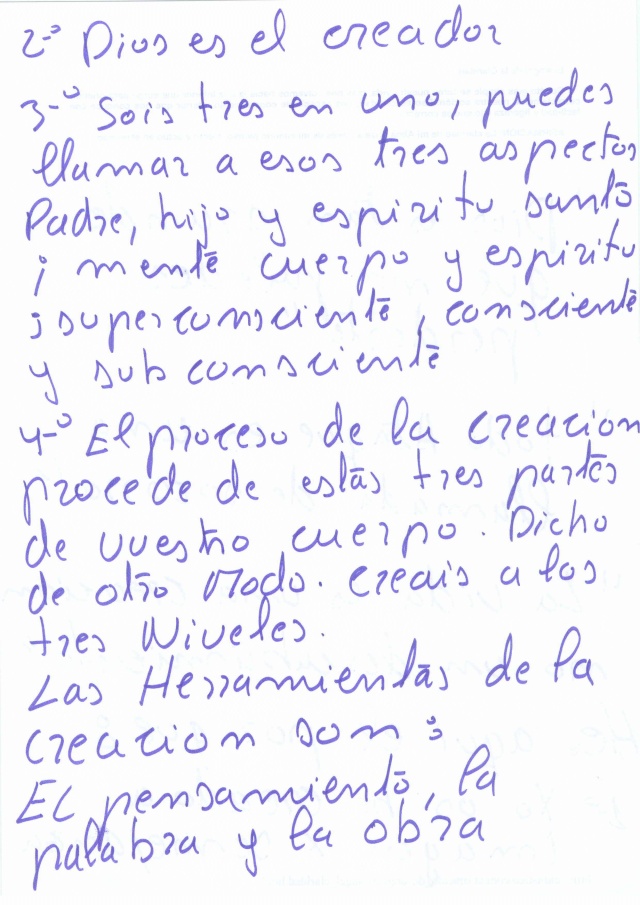 2-º Dios es el creador
3-º Sois tres en uno, puedes
llamar a esos tres aspectos
Padre, hijo y espiritu santo
; mente cuerpo y espiritu
; superconsciente, consciente
y sub consciente
4-º El proceso de la creacion
procede de estas tres partes
de vuestro cuerpo. Dicho
de otro Modo. Creais a los
tres Niveles.
Las Herramientas de la
Creacion son :
El pensamiento, la
palabra y la obra